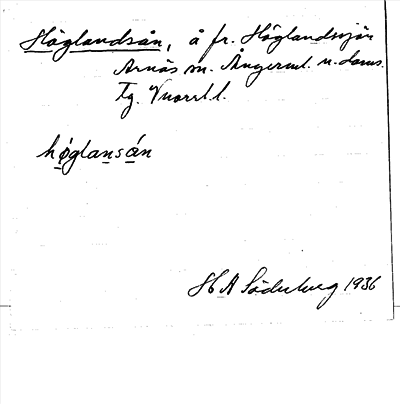 Höglandsån, å fr. Höglandssjön
Arnäs sn. Ångerml. n. doms.
Tg. l.
høglansån
H A Söderberg 1936